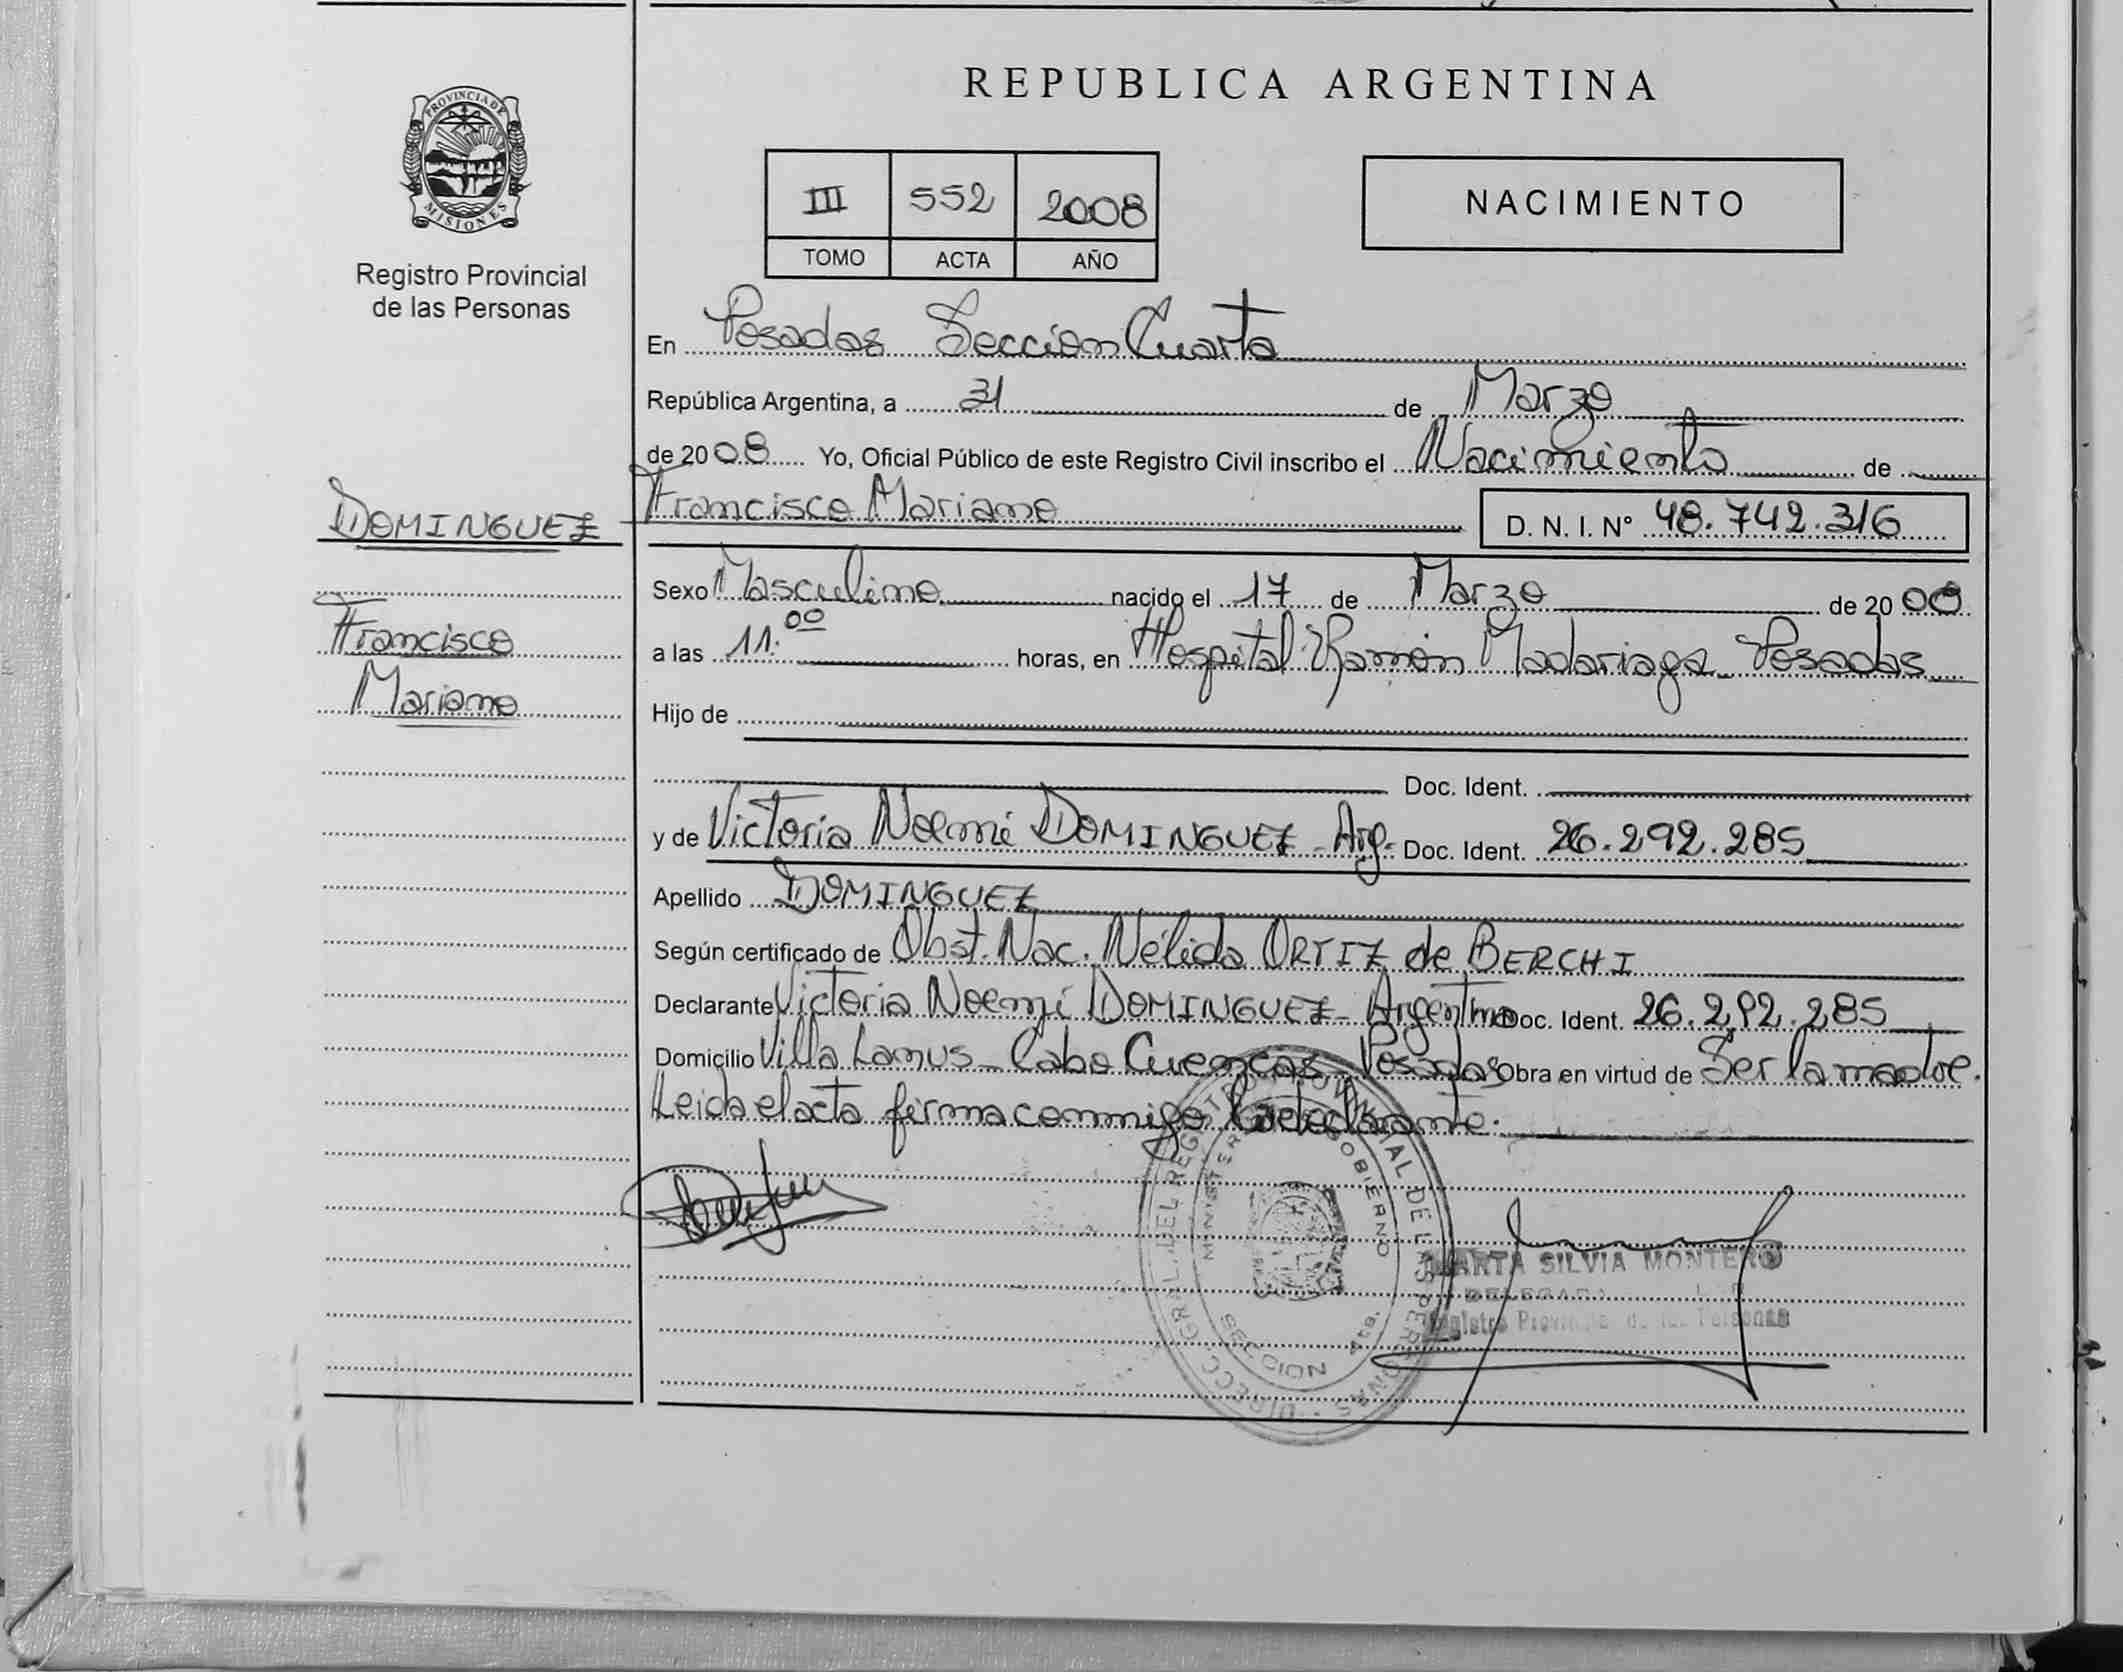 REPUBLICA ARGENTINA
PROVINCIA DE
MISIONES
Registro Provincial
de las Personas
III 552 2008
TOMO ACTA AÑO
NACIMIENTO
En Posadas Sección Cuarta
República Argentina, a 31 de Marzo
de 2008 Yo, Oficial Público de este Registro Civil inscribo el Nacimiento de
DOMINGUEZ
Francisco Mariano
D. N. I. N° 48.742.316
Sexo Masculino nacido el 17 de Marzo de 2008
Francisco
a las 11.00 horas, en Hospital Ramón Madariaga - Posadas
Mariano
Hijo de
Doc. Ident.
y de Victoria Noemí DOMINGUEZ - Arg. Doc. Ident. 26.292.285
Apellido DOMINGUEZ
Según certificado de Obst. Nac. Nélida ORTIZ de BERCHI
Declarante Victoria Noemí DOMINGUEZ - Argentina Doc. Ident. 26.292.285
Domicilio Villa Lanus - Cabo Cuencas - Posadas Obra en virtud de Ser la madre.
Leida el acta firma conmigo la declarante.
MARTA SILVIA MONTERO
DELEGADA
Registro Provincial de las Personas
DIRECC. GRAL. DEL REGISTRO PROVINCIAL DE LAS PERSONAS
MINISTERIO GOBIERNO
SECCION 4ta.